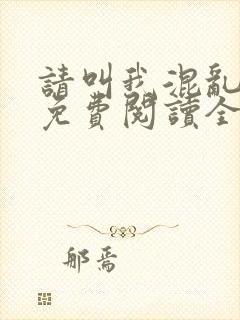 請叫我混亂
免費閱讀全
郁焉